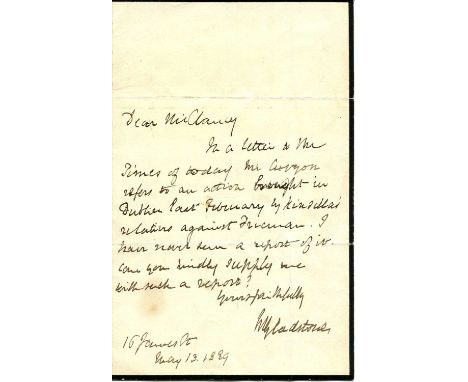 Dear Mr Clancy
In a letter to the
Times of today Mr Curzon
refers to an action brought in
Dublin last February by Kinsella's
relatives against Freeman. I
have never seen a report of it
can you kindly supply me
with such a report?
Yours faithfully
WEGladstone
16 James St
May 13. 1889